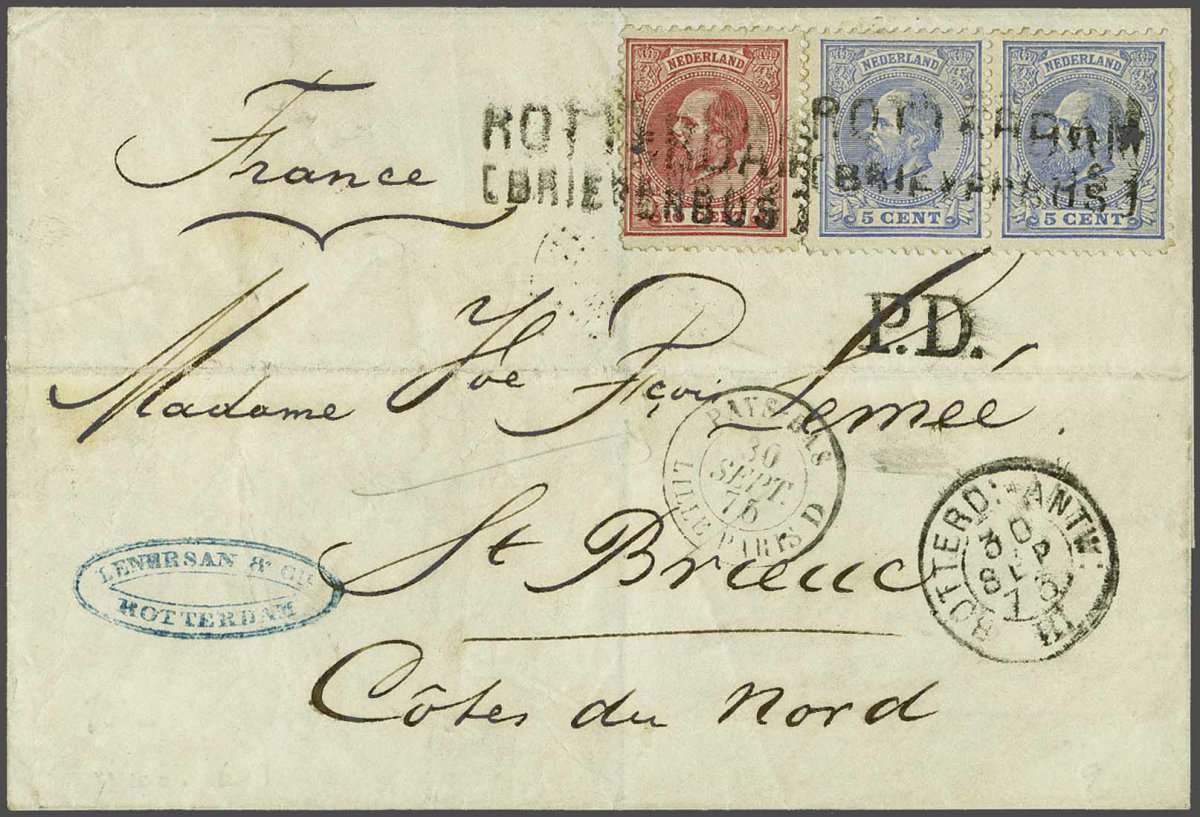 NEDERLAND
NEDERLAND
NEDERLAND
5 CENT
5 CENT
ROTTERDAM
[BRIEVENBUS]
ROTTERDAM
[BRIEVENBUS]
France
P.D.
Madame Vve Fçois Lemée.
PAYS-BAS
30
SEPT.
75
LILLE PARIS D
St Brieuc
ROTTERD: ANTW:
III
LENERSAN & CIE
ROTTERDAM
Côtes du Nord